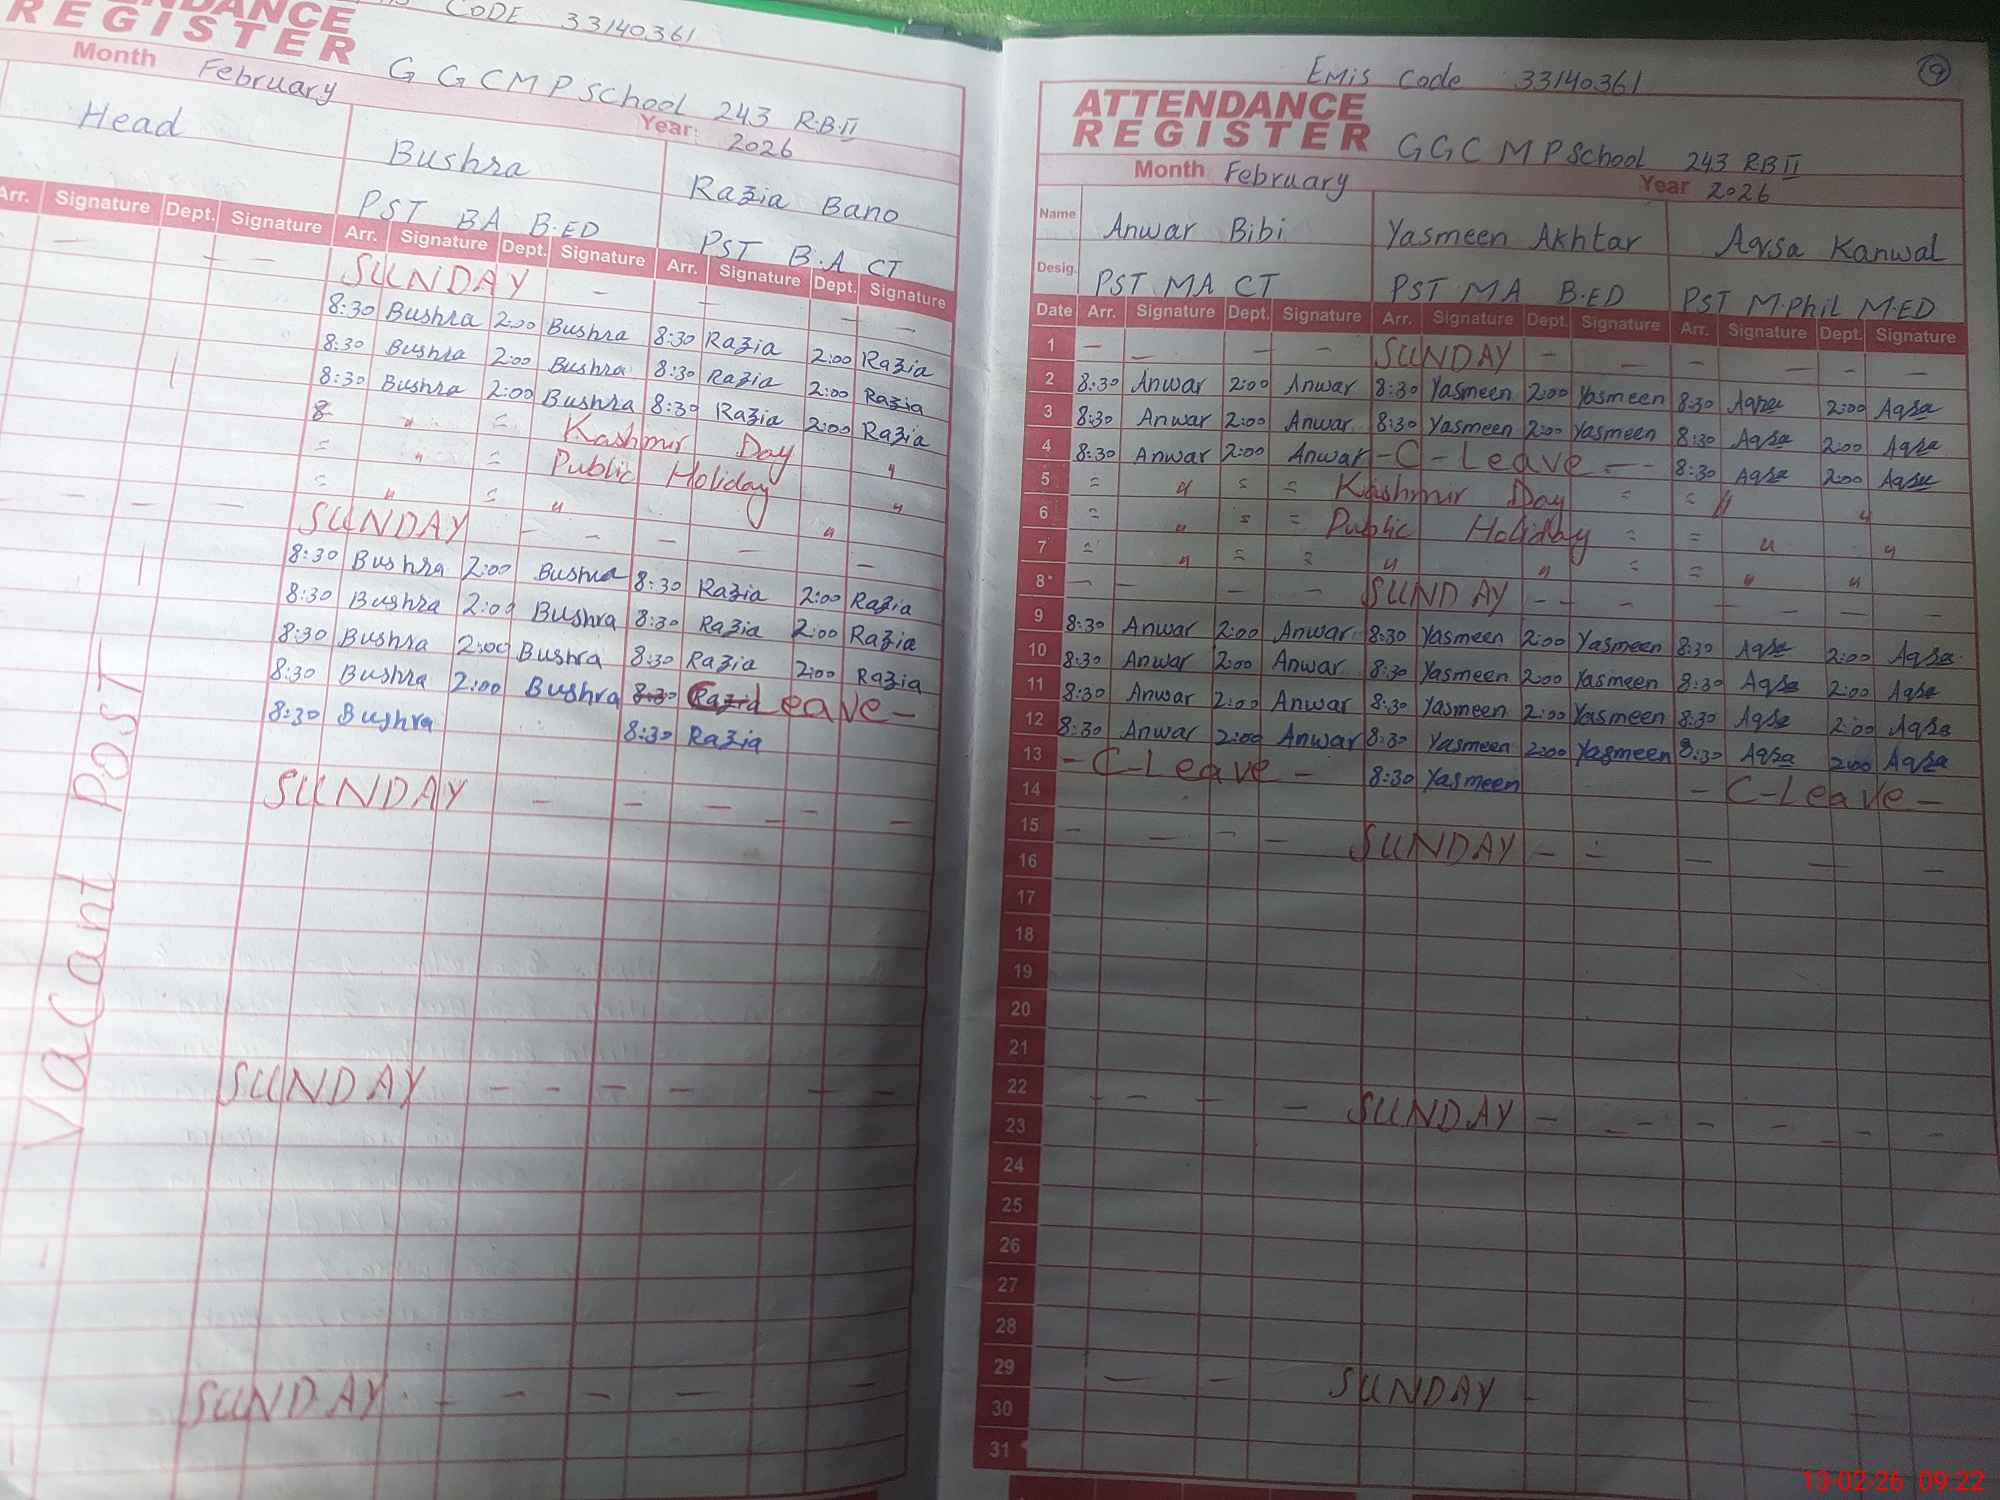 CODE 33140361
ATTENDANCE
REGISTER
Month February GGCMP School 243 R.B.II
Year: 2026
Head Bushra Razia Bano
PST BA B.ED PST B.A CT
Arr. Signature Dept. Signature Arr. Signature Dept. Signature Arr. Signature Dept. Signature
— — — SUNDAY — — — —
8:30 Bushra 2:00 Bushra 8:30 Razia 2:00 Razia
8:30 Bushra 2:00 Bushra 8:30 Razia 2:00 Razia
8:30 Bushra 2:00 Bushra 8:30 Razia 2:00 Razia
8 " = Kashmir Day "
= " = Public Holiday "
= " = " "
— — — — — SUNDAY — — — — —
8:30 Bushra 2:00 Bushra 8:30 Razia 2:00 Razia
8:30 Bushra 2:00 Bushra 8:30 Razia 2:00 Razia
8:30 Bushra 2:00 Bushra 8:30 Razia 2:00 Razia
8:30 Bushra 2:00 Bushra 8:30 Razia C Leave —
8:30 Bushra 8:30 Razia
SUNDAY — — — — — —
SUNDAY — — — — — —
SUNDAY — — — — —
Vacant POST
Emis Code 33140361 9
ATTENDANCE
REGISTER GGCMP School 243 RB II
Month February Year 2026
Name Anwar Bibi Yasmeen Akhtar Aqsa Kanwal
Desig. PST MA CT PST MA B.ED PST M.Phil M.ED
Date Arr. Signature Dept. Signature Arr. Signature Dept. Signature Arr. Signature Dept. Signature
1 — — — — SUNDAY — — — — — —
2 8:30 Anwar 2:00 Anwar 8:30 Yasmeen 2:00 Yasmeen 8:30 Aqsa 2:00 Aqsa
3 8:30 Anwar 2:00 Anwar 8:30 Yasmeen 2:00 Yasmeen 8:30 Aqsa 2:00 Aqsa
4 8:30 Anwar 2:00 Anwar - C - Leave — - 8:30 Aqsa 2:00 Aqsa
5 = " = = Kashmir Day = = " "
6 = " = = Public Holiday = = " "
7 = " = = " " = = " "
8 — — — — SUNDAY — — — — — —
9 8:30 Anwar 2:00 Anwar 8:30 Yasmeen 2:00 Yasmeen 8:30 Aqsa 2:00 Aqsa
10 8:30 Anwar 2:00 Anwar 8:30 Yasmeen 2:00 Yasmeen 8:30 Aqsa 2:00 Aqsa
11 8:30 Anwar 2:00 Anwar 8:30 Yasmeen 2:00 Yasmeen 8:30 Aqsa 2:00 Aqsa
12 8:30 Anwar 2:00 Anwar 8:30 Yasmeen 2:00 Yasmeen 8:30 Aqsa 2:00 Aqsa
13 - C-Leave - 8:30 Yasmeen - C-Leave -
14
15 — — — — SUNDAY — — — — —
16
17
18
19
20
21
22 — — — — SUNDAY — — — — — — —
23
24
25
26
27
28
29 — — SUNDAY -
30
31
13-02-26 09:22